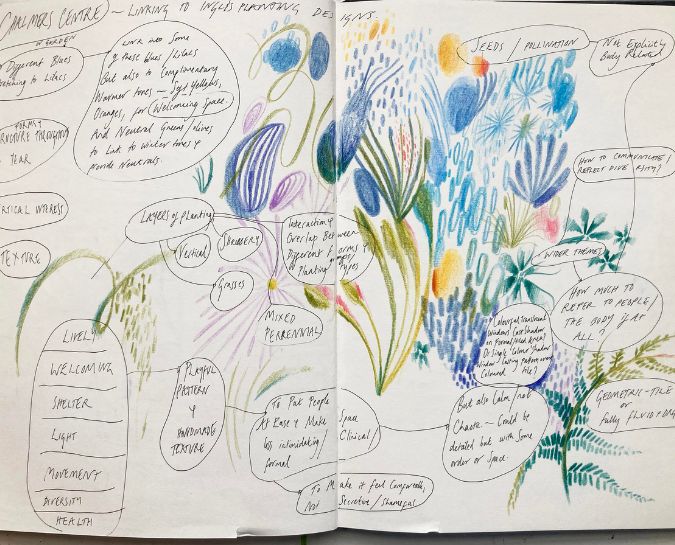 CHALMERS CENTRE) — LINKING TO INGLIS PLANTING DESIGNS.
IN GARDEN
Different Blues
to Lilacs
LINK INTO Some
of these blues / Lilacs
But also to Complimentary
Warmer tones — Yellows,
Oranges, for Welcoming Space.
And Neutral Greens/olives
to Link to winter tones &
provide Neutrals.
FORMS &
STRUCTURE THROUGHOUT
YEAR
VERTICAL INTEREST
TEXTURE
LAYERS of Planting
Vertical
SHRUBBERY
Grasses
MIXED
PERRENNIAL
Interaction &
Overlap Between
Different Forms &
of Planting Types
SEEDS / POLLINATION
Not Explicitly
Body Related
HOW TO COMMUNICATE/
REFLECT DIVERSITY?
WIDER THEMES
HOW MUCH TO
REFER TO PEOPLE,
THE BODY IF AT
ALL?
Colourful Translucent
Windows Cast Shadow
on
Or Single 'Colour' Shadow
Window
Coloured tile?
GEOMETRIC-TILE
or
fully fluid
But also Calm, not
Chaotic — Could be
detailed but with Some
order or Space.
LIVELY
WELCOMING
SHELTER
LIGHT
MOVEMENT
DIVERSITY
HEALTH
PLAYFUL
PATTERN
&
HANDMADE
TEXTURE
To Put People
At Ease & Make Space
less intimidating / Clinical
formal
To Make it feel Comfortable,
Not Secretive / Shameful